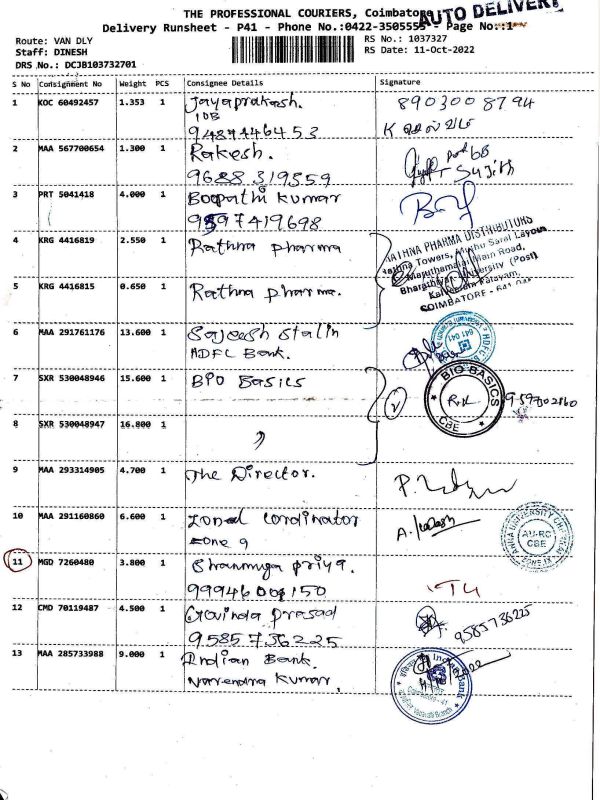 THE PROFESSIONAL COURIERS, Coimbatore
AUTO DELIVERY
Delivery Runsheet - P41 - Phone No.:0422-3505555 - Page No.:1
Route: VAN DLY
RS No.: 1037327
Staff: DINESH
RS Date: 11-Oct-2022
DRS No.: DCJB103732701
S No Consignment No Weight PCS Consignee Details Signature
1 KOC 60492457 1.353 1 Jayaprakash. 8903008794
IOB
9487446453
2 MAA 567700654 1.300 1 Rakesh.
9688319559
3 PRT 5041418 4.000 1 Boopathi kumar
9597419698
4 KRG 4416819 2.550 1 Rathna pharma
RATHNA PHARMA DISTRIBUTORS
Rathna Towers, Muthu Saral Layout
Maruthamalai Main Road,
Bharathiyar University (Post)
COIMBATORE - 641 046
5 KRG 4416815 0.650 1 Rathna pharma.
6 MAA 291761176 13.600 1 Sajeesh Stalin
HDFC Bank.
HDFC
641 041
7 SXR 530048946 15.600 1 BPO Basics
2
BIO BASICS
CBE
8 SXR 530048947 16.800 1 "
9 MAA 293314905 4.700 1 The Director.
10 MAA 291160860 6.600 1 Zonal Cordinator
Zone 9
ANNA UNIVERSITY CHENNAI
AU-RC
CBE
ZONE IX
11 MGD 7260480 3.800 1 Shanmuga priya.
9994600150
12 CMD 70119487 4.500 1 Govinda prasad
9585736225
9585736225
13 MAA 285733988 9.000 1 Indian Bank.
Narendra Kumar.
Indian Bank